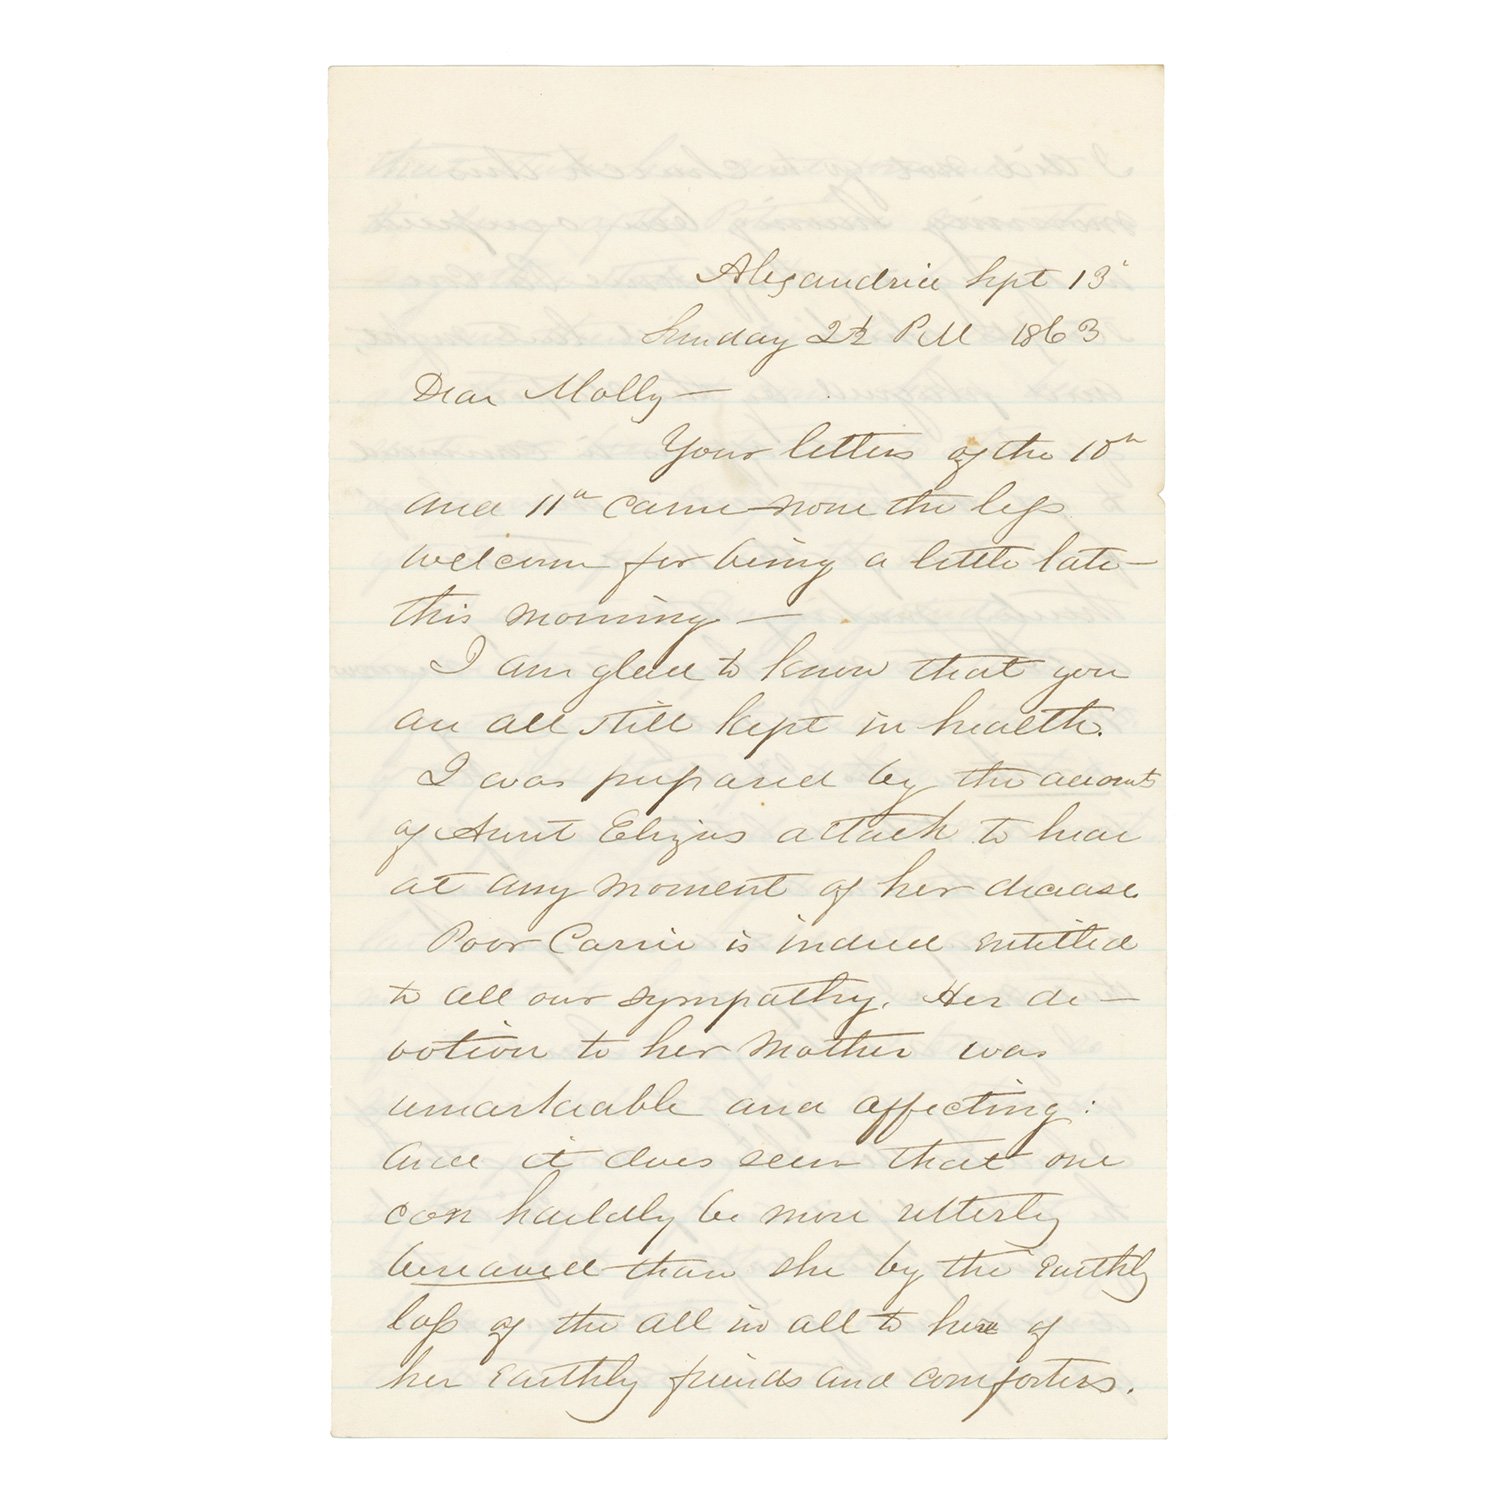 Alexandria Sept 13
Sunday 2½ P.M 1863
Dear Molly —
Your letters of the 10th
and 11th came none the less
welcome for being a little late —
this morning —
I am glad to know that you
are all still kept in health.
I was prepared by the accounts
of Aunt Elizas attack to hear
at any moment of her decease.
Poor Carrie is indeed entitled
to all our sympathy. Her de —
votion to her Mother was
remarkable and affecting:
and it does seem that one
can hardly be more utterly
bereaved than she by the Earthly
loss of the all in all to her of
her Earthly friends and comforters.